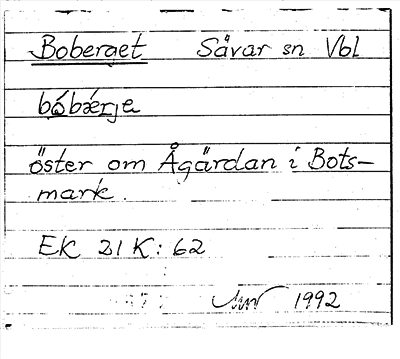 Boberget Sävar sn Vbl
bóbǽrje
öster om Ågärdan i Bots-
mark.
EK 21 K: 62
1992